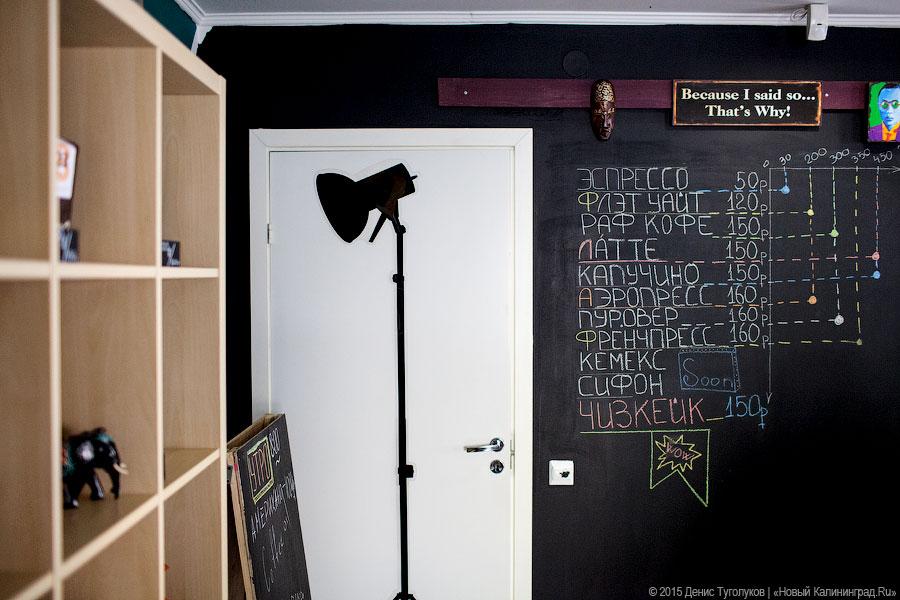 Because I said so...
That's Why!
0 30 200 300 350 450
ЭСПРЕССО 50р
ФЛЭТ УАЙТ 120р
РАФ КОФЕ 150р
ЛАТТЕ 150р
КАПУЧИНО 150р
АЭРОПРЕСС 160р
ПУРОВЕР 160р
ФРЕНЧПРЕСС 160р
КЕМЕКС
СИФОН
Soon
ЧИЗКЕЙК 150р
WOW
Coffee
© 2015 Денис Туголуков | «Новый Калининград.Ru»